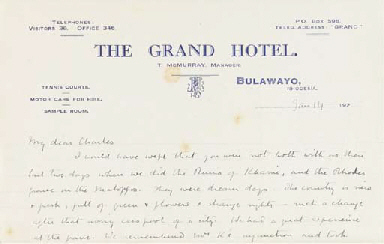 TELEPHONES:
VISITORS 36. OFFICE 346.
P.O. BOX 590.
THE GRAND HOTEL.
T. McMURRAY, MANAGER.
BULAWAYO,
RHODESIA.
TENNIS COURTS.
MOTOR CARS FOR HIRE.
SAMPLE ROOM.
Jan 19 192
My dear Charles
I could have wept that you were not both with us these
last two days when we did the Ruins of Khami, and the Rhodes
grave in the Matoppos. They were dream days. The country is
a park, full of green & flowers & strange sights - such a change
after that cesspool of a city. We had a great experience
at the grave.